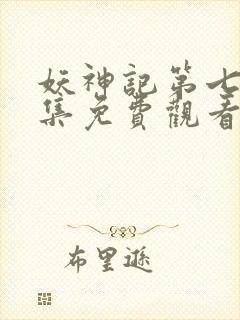 妖神記第七
集免費觀看
布里遜